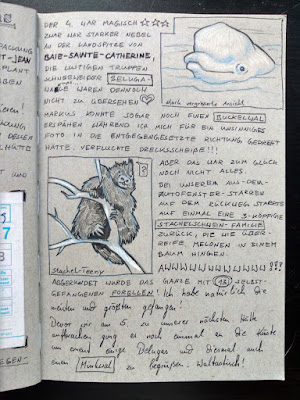 DER 4. WAR MAGISCH ☆☆☆
ZWAR WAR STARKER NEBEL
AN DER LANDSPITZE VON
BAIE-SAINTE-CATHERINE,
DIE LUSTIGEN TRUPPEN
SCHNEEWEIßER BELUGA-
WALE WAREN DENNOCH
NICHT ZU ÜBERSEHEN ♡
stark vergrößerte Ansicht
MARKUS KONNTE SOGAR NOCH EINEN BUCKELWAL
ERSPÄHEN WÄHREND ICH MICH FÜR EIN UNSINNIGES
FOTO IN DIE ENTGEGENGESETZTE RICHTUNG GEDREHT
HATTE. VERFLUCHTE DRECKSSCHEIßE!!!
ABER DAS WAR ZUM GLÜCK
NOCH NICHT ALLES.
BEI UNSEREM AUS-DEM-
AUTOFENSTER-STARREN
AUF DEM RÜCKWEG STARRTE
AUF EINMAL EINE 3-KÖPFIGE
STACHELSCHWEIN-FAMILIE
ZURÜCK, DIE WIE ÜBER-
REIFE MELONEN IN EINEM
BAUM HINGEN.
Stachel-Teeny
ABGERUNDET WURDE DAS GANZE MIT 13 SELBST-
GEFANGENEN FORELLEN! Ich habe natürlich die
meisten und größten gefangen!
Bevor wir am 5. zu unserer nächsten Hütte
aufbrachen ging es noch einmal an die Küste
um erneut einige Belugas und diesmal auch
einen Minkwal zu begrüßen. Waltastisch!
PLANT